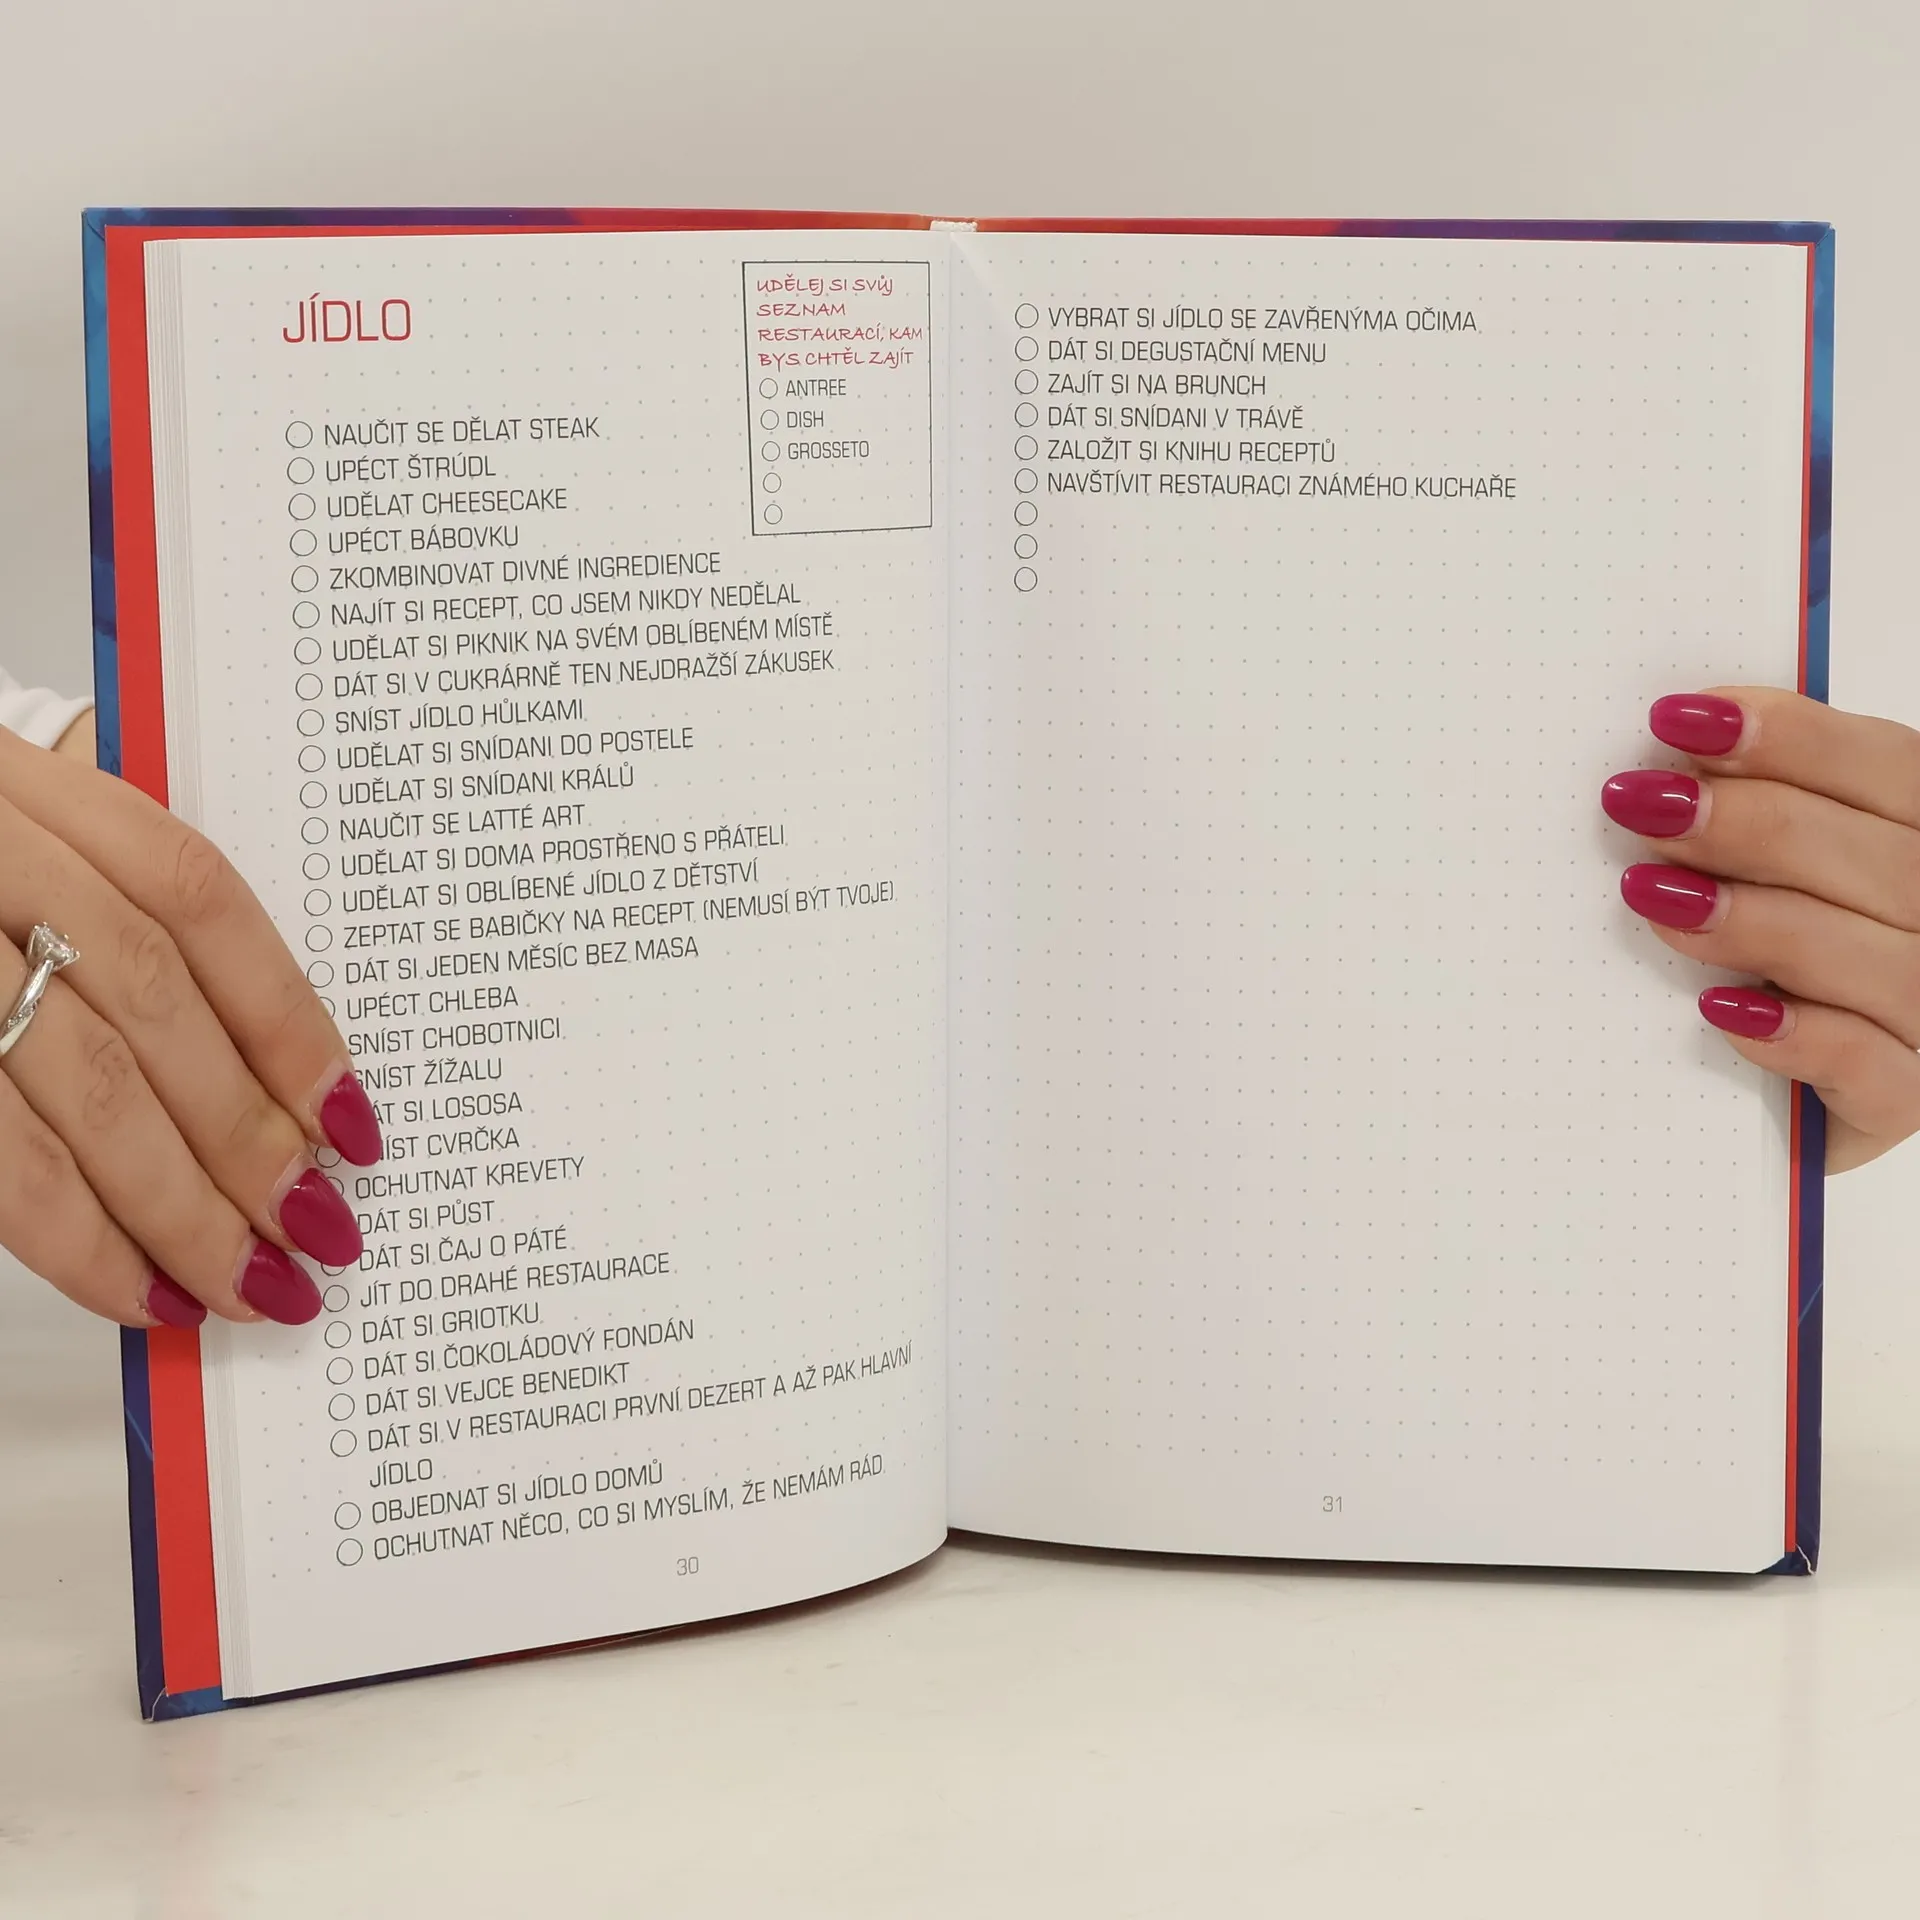 JÍDLO
UDĚLEJ SI SVŮJ
SEZNAM
RESTAURACÍ, KAM
BYS CHTĚL ZAJÍT
ANTREE
DISH
GROSSETO
NAUČIT SE DĚLAT STEAK
UPÉCT ŠTRÚDL
UDĚLAT CHEESECAKE
UPÉCT BÁBOVKU
ZKOMBINOVAT DIVNÉ INGREDIENCE
NAJÍT SI RECEPT, CO JSEM NIKDY NEDĚLAL
UDĚLAT SI PIKNIK NA SVÉM OBLÍBENÉM MÍSTĚ
DÁT SI V CUKRÁRNĚ TEN NEJDRAŽŠÍ ZÁKUSEK
SNÍST JÍDLO HŮLKAMI
UDĚLAT SI SNÍDANI DO POSTELE
UDĚLAT SI SNÍDANI KRÁLŮ
NAUČIT SE LATTÉ ART
UDĚLAT SI DOMA PROSTŘENO S PŘÁTELI
UDĚLAT SI OBLÍBENÉ JÍDLO Z DĚTSTVÍ
ZEPTAT SE BABIČKY NA RECEPT (NEMUSÍ BÝT TVOJE)
DÁT SI JEDEN MĚSÍC BEZ MASA
UPÉCT CHLEBA
SNÍST CHOBOTNICI
SNÍST ŽÍŽALU
DÁT SI LOSOSA
SNÍST CVRČKA
OCHUTNAT KREVETY
DÁT SI PŮST
DÁT SI ČAJ O PÁTÉ
JÍT DO DRAHÉ RESTAURACE
DÁT SI GRIOTKU
DÁT SI ČOKOLÁDOVÝ FONDÁN
DÁT SI VEJCE BENEDIKT
DÁT SI V RESTAURACI PRVNÍ DEZERT A AŽ PAK HLAVNÍ
JÍDLO
OBJEDNAT SI JÍDLO DOMŮ
OCHUTNAT NĚCO, CO SI MYSLÍM, ŽE NEMÁM RÁD
30
VYBRAT SI JÍDLO SE ZAVŘENÝMA OČIMA
DÁT SI DEGUSTAČNÍ MENU
ZAJÍT SI NA BRUNCH
DÁT SI SNÍDANI V TRÁVĚ
ZALOŽIT SI KNIHU RECEPTŮ
NAVŠTÍVIT RESTAURACI ZNÁMÉHO KUCHAŘE
31